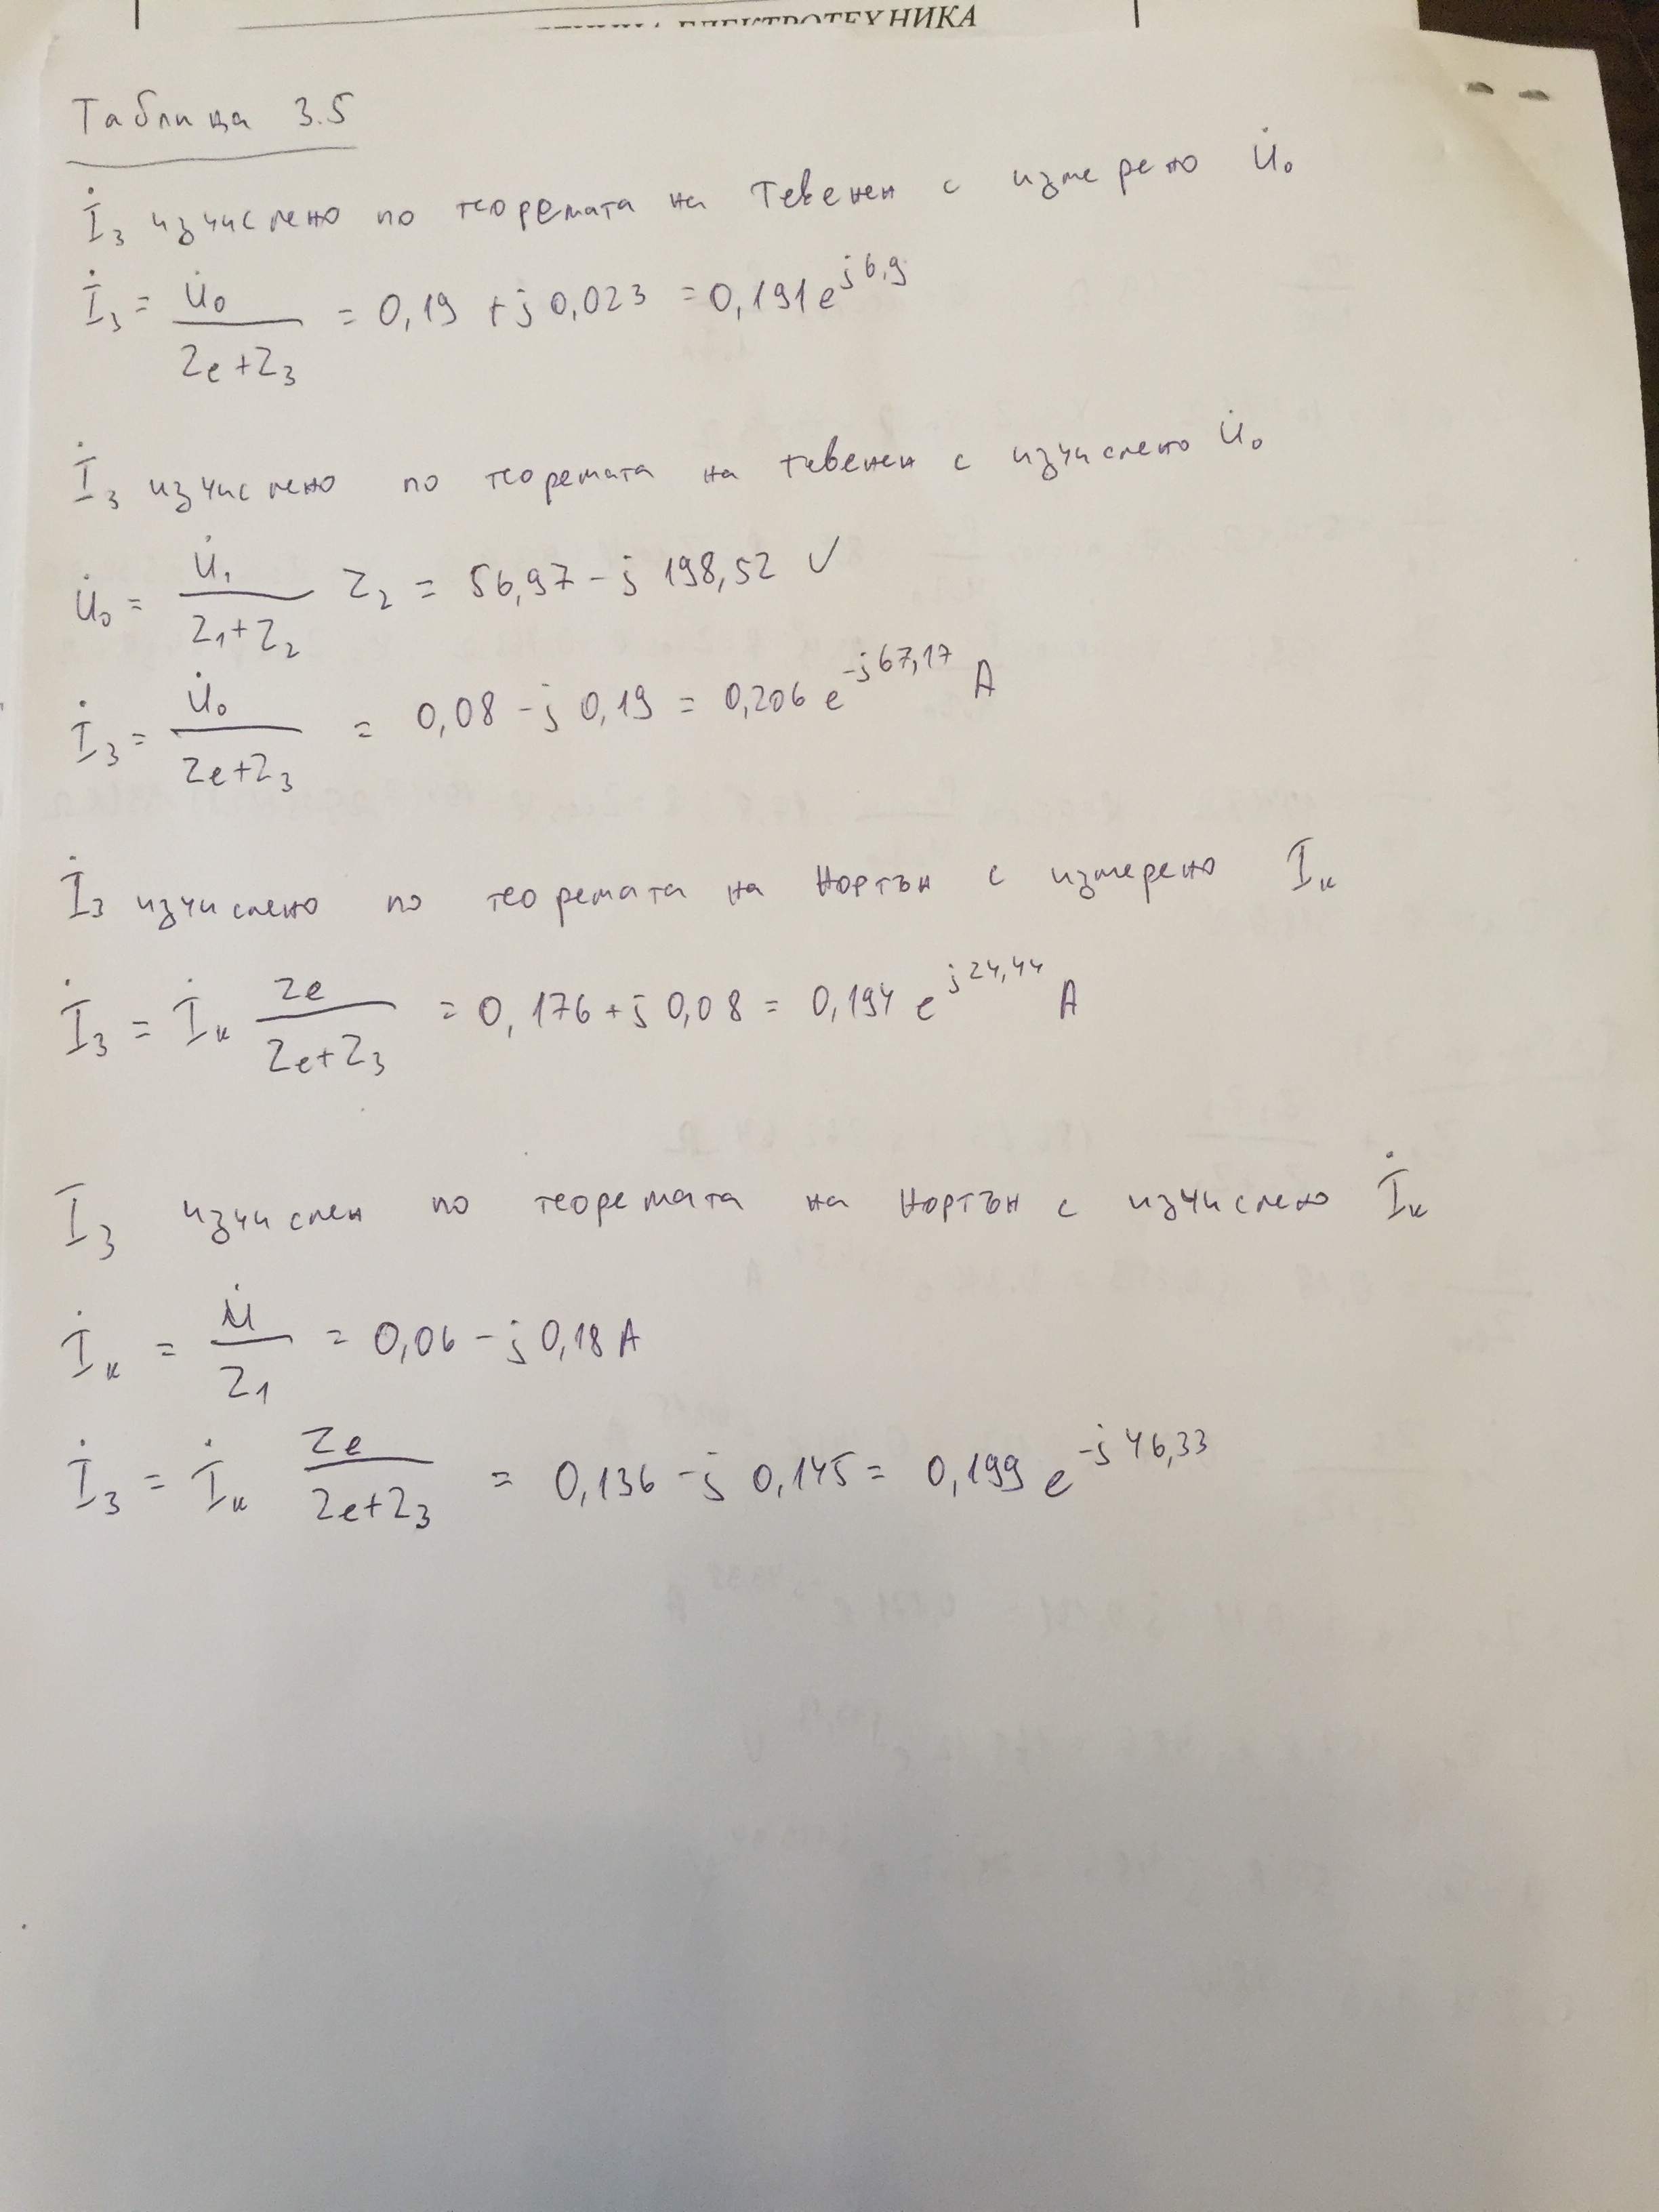 ЕЛЕКТРОТЕХНИКА
Таблица 3.5
İ₃ изчислено по теоремата на Тевенен с измерено U̇₀
İ₃ = U̇₀ / (Ze+Z₃) = 0,19 + j 0,023 = 0,191 e^(j6,9)
İ₃ изчислено по теоремата на тевенен с изчислено U̇₀
U̇₀ = U̇₁ / (Z₁+Z₂) Z₂ = 56,97 - j 198,52 V
İ₃ = U̇₀ / (Ze+Z₃) = 0,08 - j 0,19 = 0,206 e^(-j67,17) A
İ₃ изчислено по теоремата на Нортън с измерено Iк
İ₃ = İк Ze / (Ze+Z₃) = 0,176 + j 0,08 = 0,194 e^(j24,44) A
I₃ изчислен по теоремата на Нортън с изчислено İк
İк = U̇ / Z₁ = 0,06 - j 0,18 A
İ₃ = İк Ze / (Ze+Z₃) = 0,136 - j 0,145 = 0,199 e^(-j46,33)